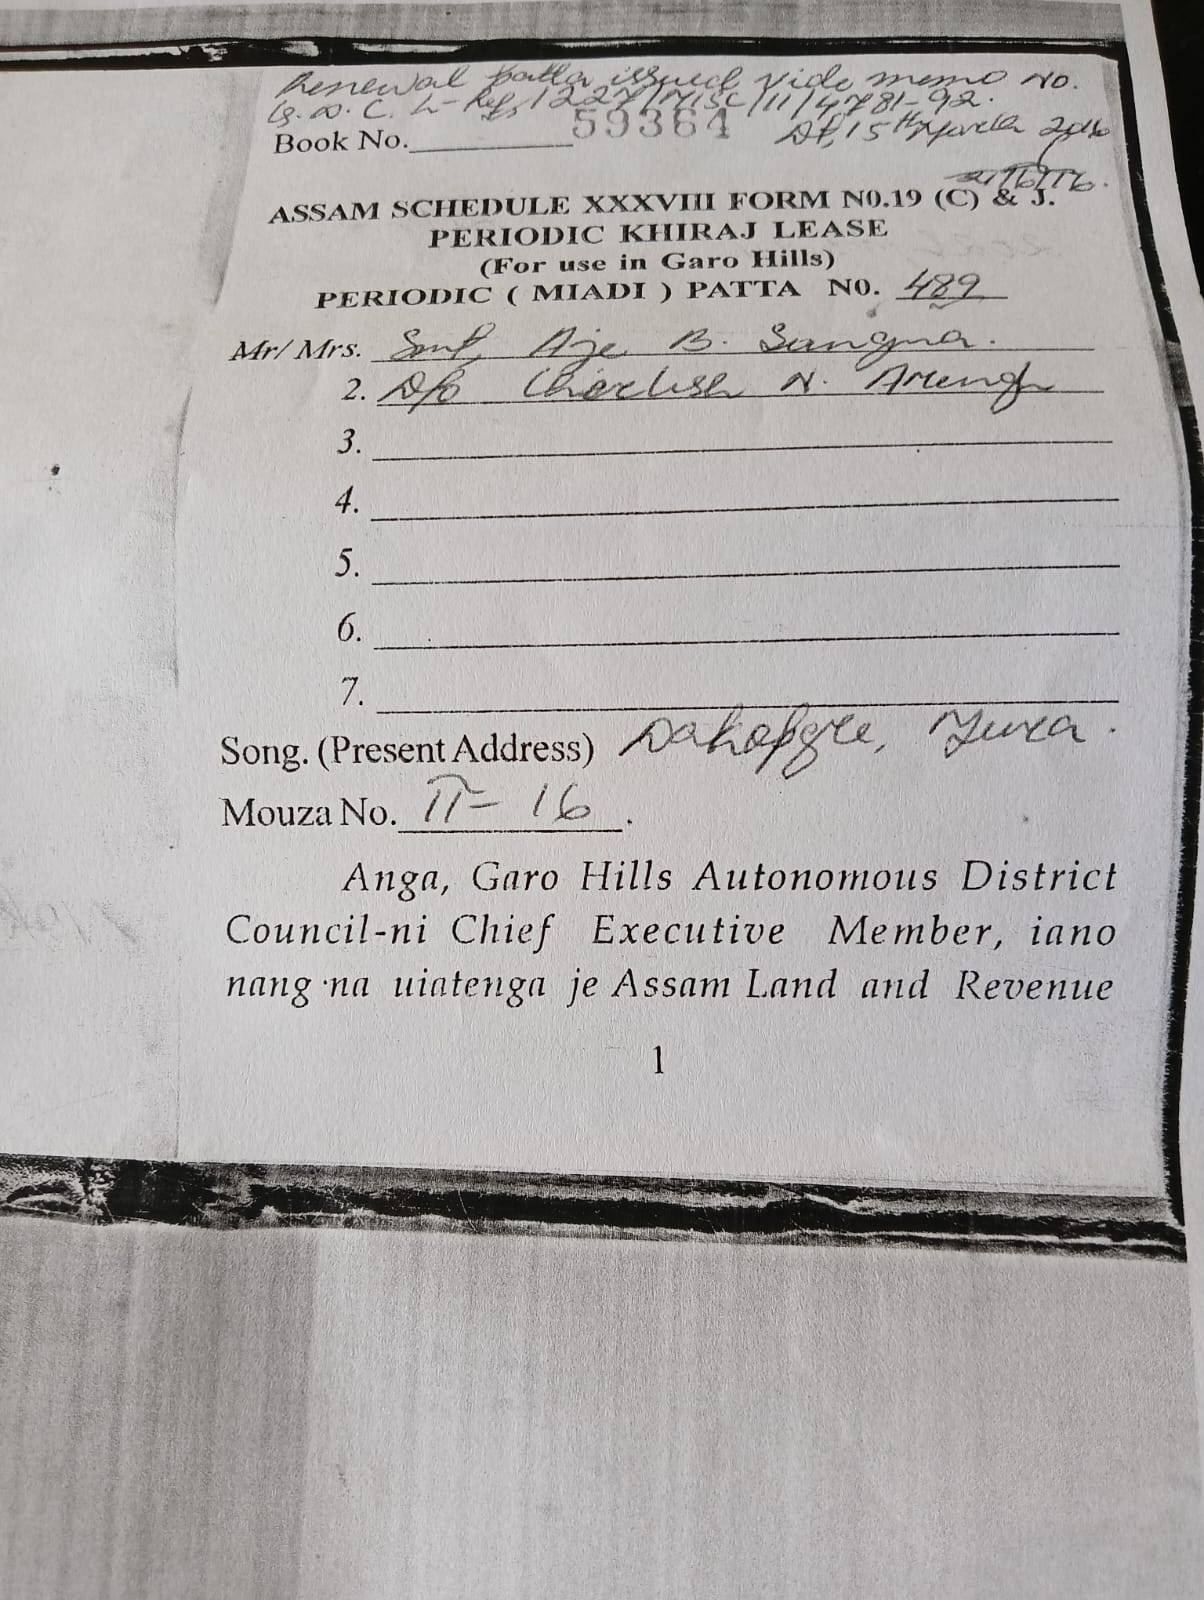 Renewal patta issued vide memo no.
G.D.C. L-Reg/1227/MISC/11/4781-92.
Book No. 59364 Dt, 15th March 2016
ASSAM SCHEDULE XXXVIII FORM N0.19 (C) & J.
PERIODIC KHIRAJ LEASE
(For use in Garo Hills)
PERIODIC ( MIADI ) PATTA N0. 489
Mr/ Mrs. Smt, Aje B. Sangma.
2. D/o N. Arengh
3.
4.
5.
6.
7.
Song. (Present Address) Dakopgre, Tura.
Mouza No. II - 16.
Anga, Garo Hills Autonomous District
Council-ni Chief Executive Member, iano
nang·na uiatenga je Assam Land and Revenue
1